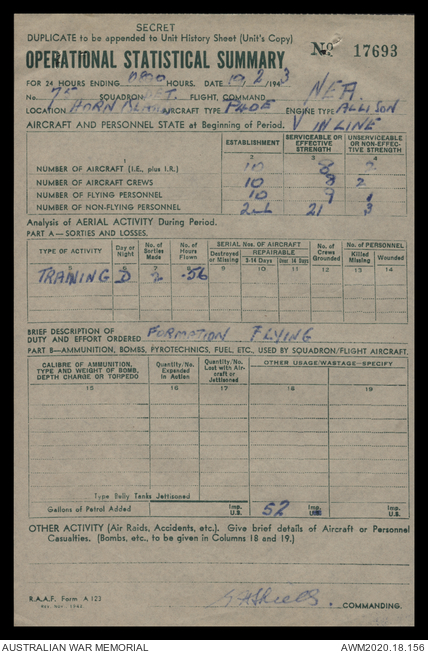 SECRET
DUPLICATE to be appended to Unit History Sheet (Unit's Copy)
OPERATIONAL STATISTICAL SUMMARY
No 17693
FOR 24 HOURS ENDING HOURS. DATE 19/2/1943
No. 75 SQUADRON DET. FLIGHT, COMMAND NEA.
LOCATION HORN AIRCRAFT TYPE P40E ENGINE TYPE ALLISON
INLINE
AIRCRAFT AND PERSONNEL STATE at Beginning of Period.
ESTABLISHMENT SERVICEABLE OR EFFECTIVE STRENGTH UNSERVICEABLE OR NON-EFFECTIVE STRENGTH
1 2 3 4
NUMBER OF AIRCRAFT (I.E., plus I.R.) 10 8 2
NUMBER OF AIRCRAFT CREWS 10 8 2
NUMBER OF FLYING PERSONNEL 10 9 1
NUMBER OF NON-FLYING PERSONNEL 24 21 3
Analysis of AERIAL ACTIVITY During Period.
PART A—SORTIES AND LOSSES.
TYPE OF ACTIVITY Day or Night No. of Sorties Made No. of Hours Flown SERIAL Nos. OF AIRCRAFT No. of Crews Grounded No. of PERSONNEL
Destroyed or Missing REPAIRABLE Killed Missing Wounded
3-14 Days Over 14 Days
5 6 7 8 9 10 11 12 13 14
TRAINING D 2 .56
BRIEF DESCRIPTION OF DUTY AND EFFORT ORDERED FORMATION FLYING
PART B—AMMUNITION, BOMBS, PYROTECHNICS, FUEL, ETC., USED BY SQUADRON/FLIGHT AIRCRAFT.
CALIBRE OF AMMUNITION, TYPE AND WEIGHT OF BOMB, DEPTH CHARGE OR TORPEDO Quantity/No. Expended in Action Quantity/No. Lost with Aircraft or Jettisoned OTHER USAGE/WASTAGE—SPECIFY
15 16 17 18 19
Type Belly Tanks Jettisoned
Gallons of Petrol Added Imp. U.S. 52 Imp. Imp. U.S.
OTHER ACTIVITY (Air Raids, Accidents, etc.). Give brief details of Aircraft or Personnel
Casualties. (Bombs, etc., to be given in Columns 18 and 19.)
R.A.A.F. Form A 125
COMMANDING.
AUSTRALIAN WAR MEMORIAL AWM2020.18.156